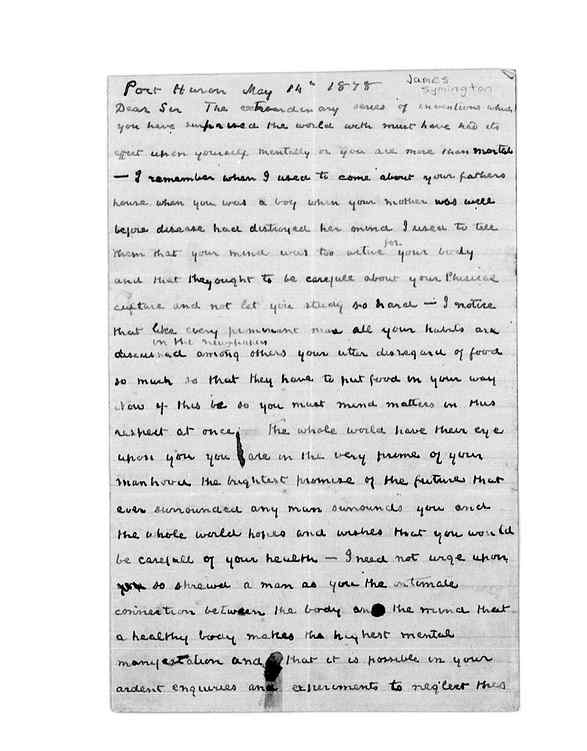 Port Huron May 14th 1878
James
Symington
Dear Sir The extraordinary series of inventions which
you have surprised the world with must have had its
effect upon yourself mentally or you are more than mortal
— I remember when I used to come about your fathers
house when you was a boy when your mother was well
before disease had distroyed her mind I used to tell
them that your mind was too active for your body
and that they ought to be carefull about your Phisical
culture and not let you study so hard — I notice
that like every prominant man all your habits are
in the newspapers
discussed among others your utter disregard of food
so much so that they have to put food in your way
Now if this be so you must mind matters in this
respect at once, the whole world have their eye
upon you you are in the very prime of your
manhood the brightest promise of the future that
ever surrounded any man surrounds you and
the whole world hopes and wishes that you would
be carefull of your health — I need not urge upon
you so shrewd a man as you the intimate
connection between the body and the mind that
a healthy body makes the highest mental
manifestation and that it is possible in your
ardent enquiries and experiments to neglect this